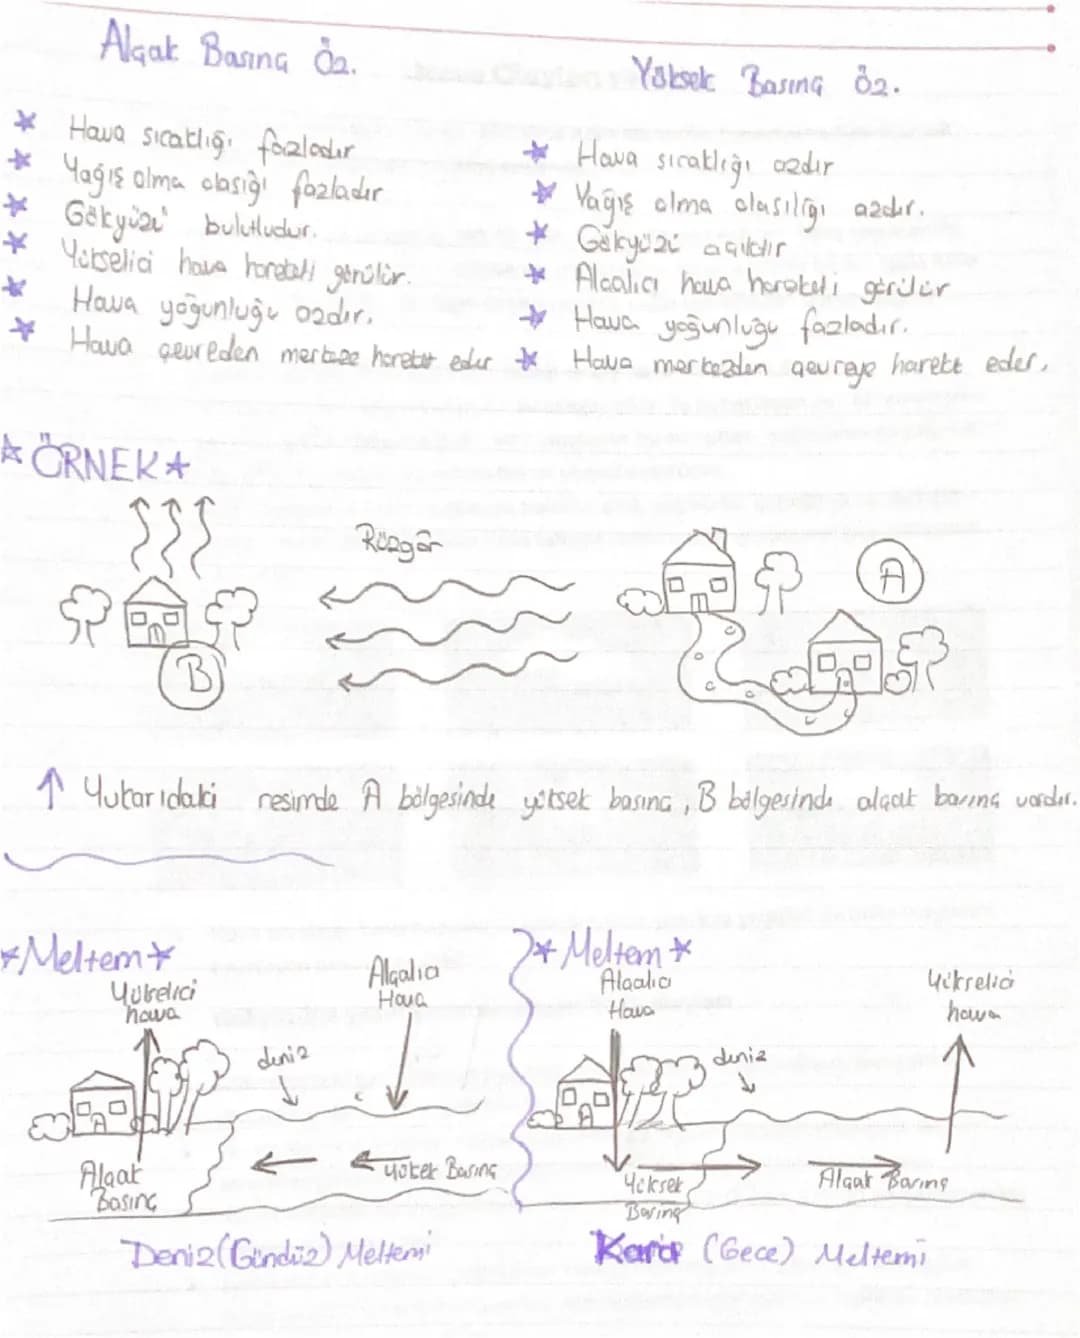 Alçak Basınç Öz.
Hava sıcaklığı fazladır
Yağış olma olasığı fazladır
Gökyüzü bulutludur.
Yükselici hava hareketi görülür.
Hava yoğunluğu azdır.
Hava çevreden merkeze hareket eder
Yüksek Basınç Öz.
Hava sıcaklığı azdır
Yağış olma olasılığı azdır.
Gökyüzü açıktır
Alçalıcı hava hareketi görülür
Hava yoğunluğu fazladır.
Hava merkezden çevreye hareket eder.
ÖRNEK
Rüzgâr
A
B
↑ Yukarıdaki resimde A bölgesinde yüksek basınç, B bölgesinde alçak basınç vardır.
Meltem
Yükselici hava
Alçalıcı Hava
deniz
Alçak Basınç
Yüksek Basınç
Deniz (Gündüz) Meltemi
Meltem
Alçalıcı Hava
Yükselici hava
deniz
Yüksek Basınç
Alçak Basınç
Kara (Gece) Meltemi